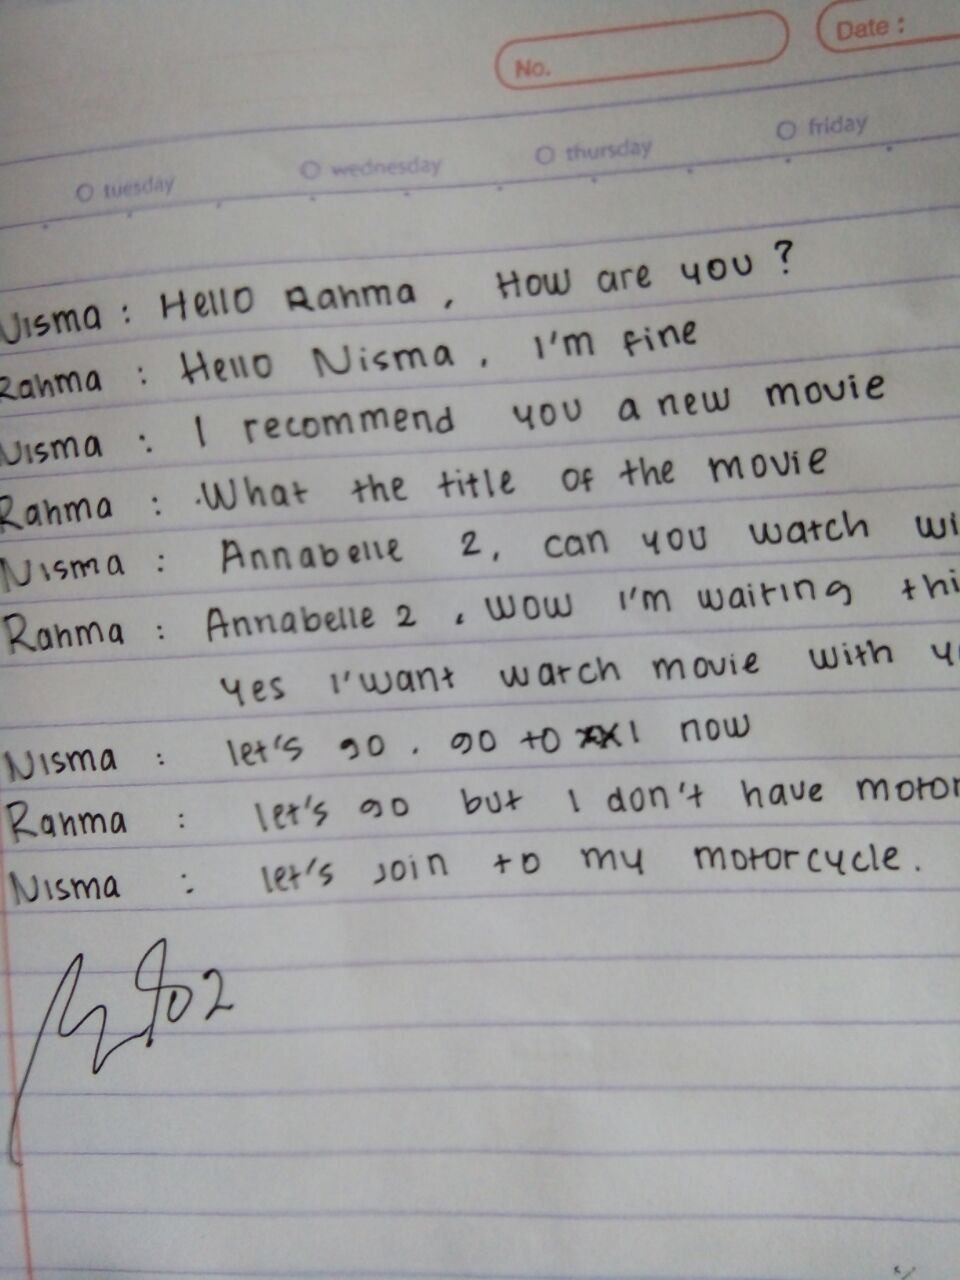 No.
Date :
tuesday wednesday thursday friday
Nisma : Hello Rahma , How are you ?
Rahma : Hello Nisma , I'm fine
Nisma : I recommend you a new movie
Rahma : What the title of the movie
Nisma : Annabelle 2, can you watch
Rahma : Annabelle 2 , wow I'm waiting
yes I'want watch movie with
Nisma : let's go . go to XXI now
Rahma : let's go but I don't have
Nisma : let's join to my motorcycle .